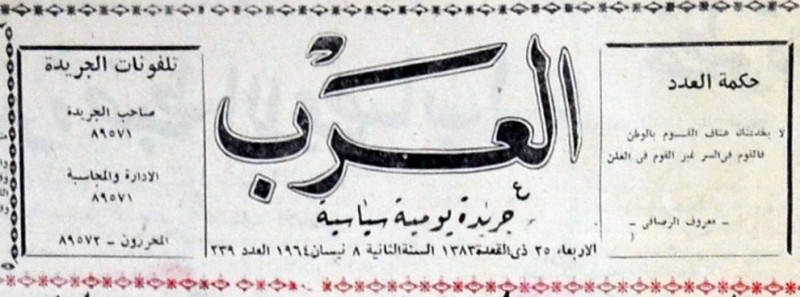 حكمة العدد
لا يخدعنك هتاف القوم بالوطن
فالقوم في السر غير القوم في العلن
ـ معروف الرصافي ـ
العرب
جريدة يومية سياسية
الاربعاء ٢٥ ذي القعدة ١٣٨٣ السنة الثانية ٨ نيسان ١٩٦٤ العدد ٢٣٩
تلفونات الجريدة
صاحب الجريدة
٨٩٥٧١
الادارة والمحاسبة
٨٩٥٧١
المحررون - ٨٩٥٧٢